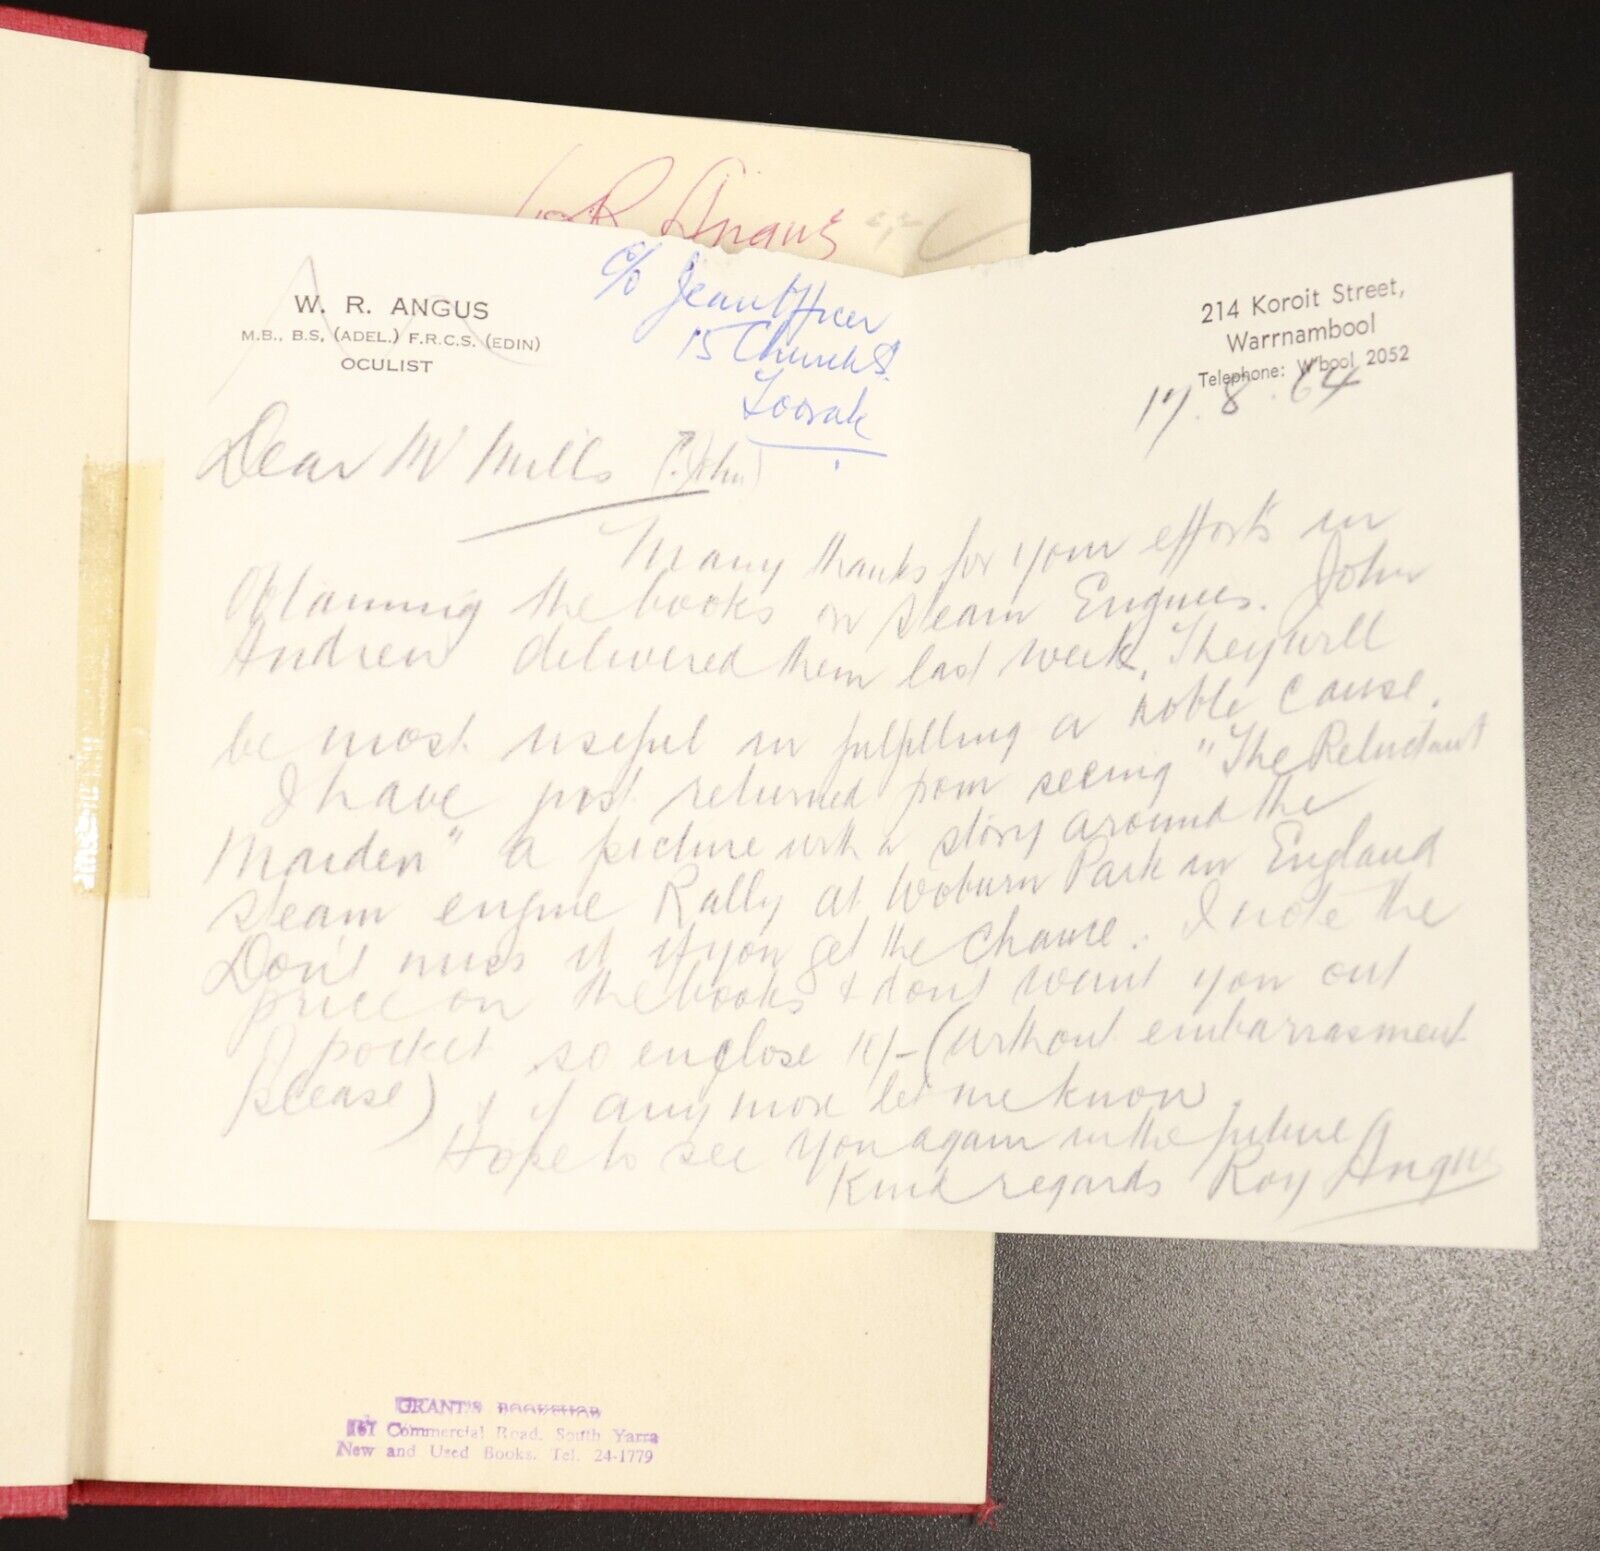 W R Angus
W. R. ANGUS
M.B., B.S, (ADEL.) F.R.C.S. (EDIN)
OCULIST
c/o Jean Officer
15 Church St.
Toorak
214 Koroit Street,
Warrnambool
Telephone: W'bool 2052
17.8.64
Dear Mr Mills (? John)
Many thanks for your efforts in
obtaining the books on steam Engines. John
Andrew delivered them last week, They will
be most useful in fulfilling a noble cause.
I have just returned from seeing "The Reluctant
Maiden" a picture with a story around the
steam engine Rally at Woburn Park in England
Don't miss it if you get the chance. I note the
price on the books & dont want you out
of pocket so enclose 10/- (without embarrasment
please) & if any more let me know.
Hope to see you again in the future
Kind regards Roy Angus
GRANT'S BOOKSHOP
161 Commercial Road, South Yarra
New and Used Books. Tel. 24-1779